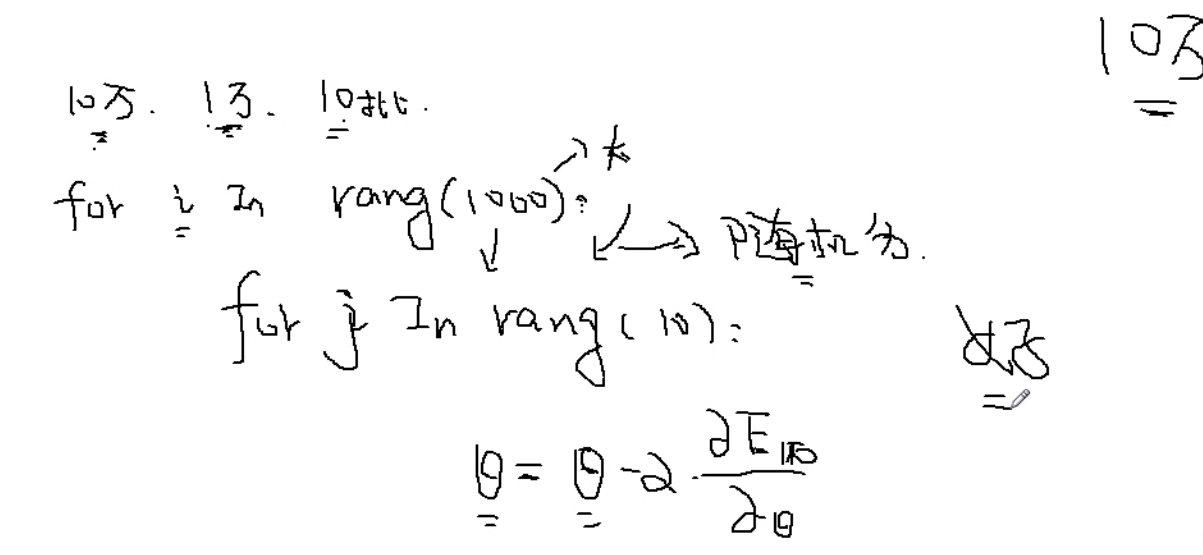 10万
10万. 1万. 10批.
for i In rang(1000): → 大
→ 随机分.
for j In rang(10):
θ = θ - α · ∂E / ∂θ